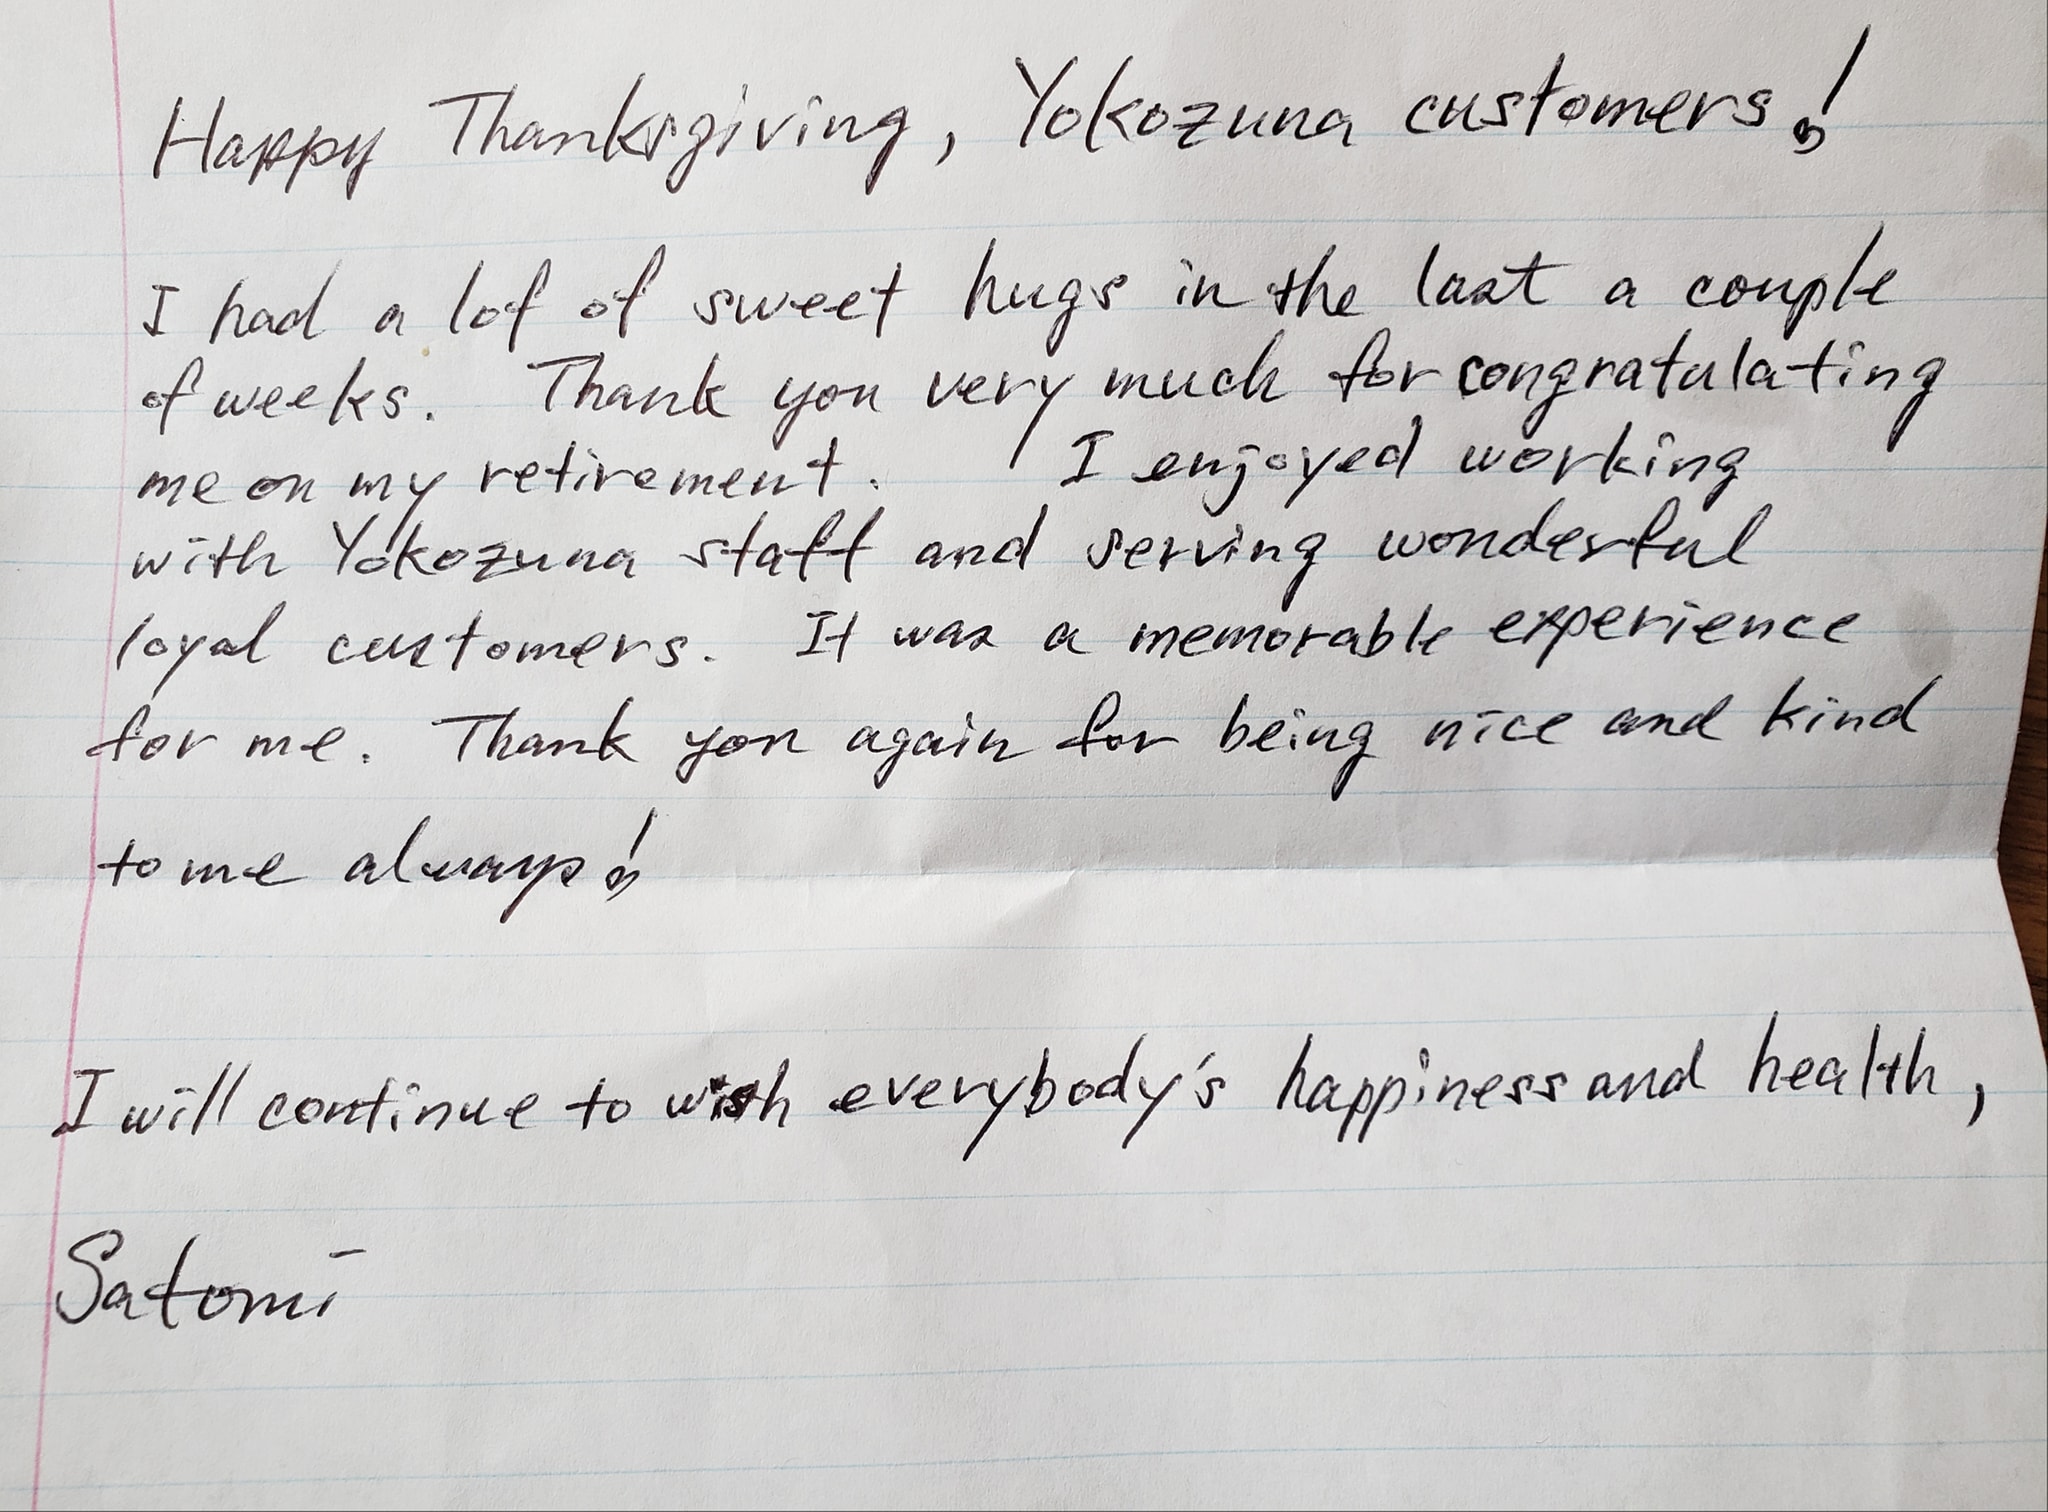 Happy Thanksgiving, Yokozuna customers!
I had a lot of sweet hugs in the last a couple
of weeks. Thank you very much for congratulating
me on my retirement. I enjoyed working
with Yokozuna staff and serving wonderful
loyal customers. It was a memorable experience
for me. Thank you again for being nice and kind
to me always!
I will continue to wish everybody's happiness and health,
Satomi